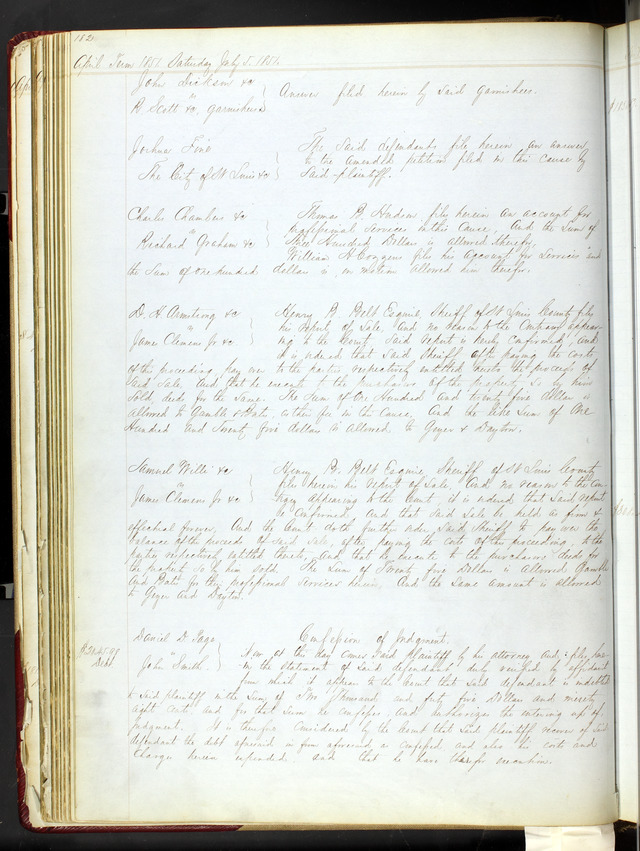 182
April Term 1851 Saturday July 5. 1851.
John Dickson &c
vs
R Scott &c, Garnishees
Answer filed herein by said garnishees.
Joshua
vs
The City of St Louis &c
The said defendants file herein an answer
to the amended petition filed in this cause by
said plaintiff.
Charles Chambers &c
vs
Richard Graham &c
Thomas B. Hudson, files herein an account for
professional services in this cause, and the sum of
Hundred Dollars is allowed therefor,
William H Cozzens files his account for services and
the sum of one hundred dollars is, on motion allowed him therefor.
D. H. Armstrong &c
vs
James Clemens Jr &c
Henry B. Belt Esquire, Sheriff of St Louis County files
his report of sale, and no reason to the contrary appear-
ing to the Court, said report is hereby confirmed, and
it is ordered that said Sheriff after paying the costs
of the proceeding, pay over to the parties respectively entitled thereto the proceeds of
said sale, and that he execute to the purchasers of the property so by him
sold, deeds for the same. The sum of One Hundred and twenty five dollars is
allowed to Gamble & Bates, as their fee in this cause, and the like sum of One
Hundred and Twenty five dollars is allowed to Geyer & Dayton.
Samuel Willi &c
vs
James Clemens Jr &c
Henry B. Belt Esquire Sheriff of St Louis County
files herein his report of sale, and no reason to the con-
trary appearing to the Court, it is ordered that said report
be confirmed and that said sale be held as firm &
effectual forever, and the Court doth further order said Sheriff to pay over the
balance of the proceeds of said sale, after paying the costs of the proceeding, to the
parties respectively entitled thereto, and that he execute to the purchasers deeds for
the property so by him sold. The sum of Twenty five Dollars is allowed Gamble
and Bates for their professional services herein, and the same amount is allowed
to Geyer and Dayton.
$2045.98
Debt
Daniel D. Page
vs
John Smith
Confession of Judgment
Now at this day comes said plaintiff by his attorney and files here-
in the statement of said defendant duly verified by affidavit
from which it appears to the Court that said defendant is indebted
to said plaintiff in the sum of Two Thousand and forty five Dollars and ninety
eight cents and for that sum he confesses and authorizes the entering up of
Judgment. It is therefore considered by the Court that said plaintiff recover of said
defendant the debt aforesaid in form aforesaid confessed, and also his costs and
charges herein expended and that he have therefor execution.